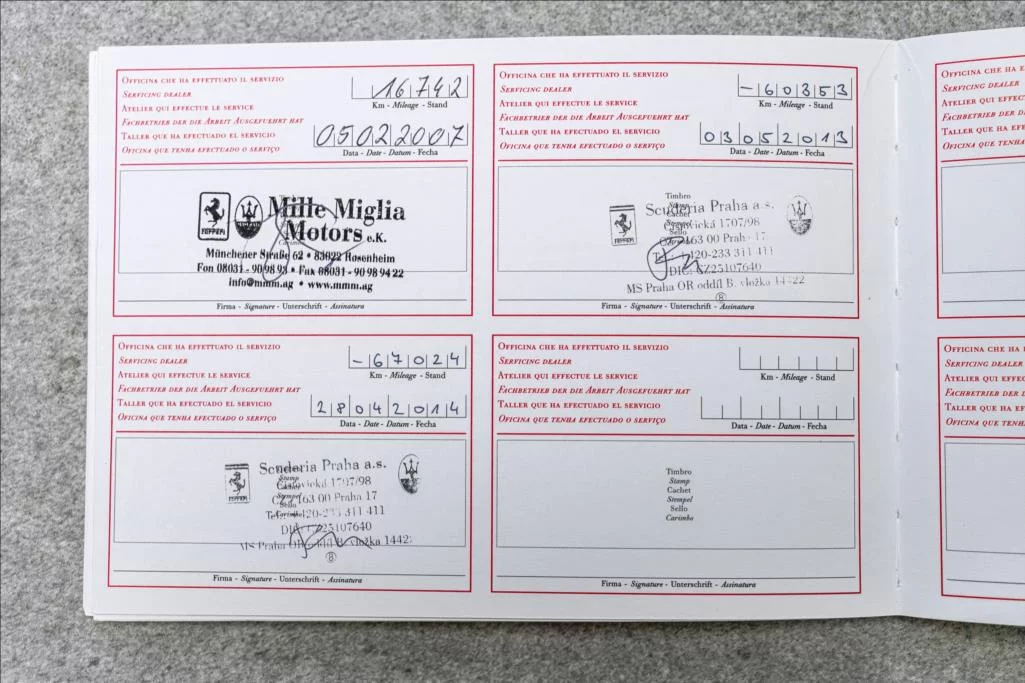 Officina che ha effettuato il servizio
Servicing dealer
Atelier qui effectue le service
Fachbetrieb der die Arbeit Ausgefuehrt hat
Taller que ha efectuado el servicio
Oficina que tenha efectuado o serviço
16742
Km - Mileage - Stand
05022007
Data - Date - Datum - Fecha
Ferrari
Mille Miglia
Motors e.K.
Münchener Straße 62 • 83022 Rosenheim
Fon 08031 - 90 98 93 • Fax 08031 - 90 98 94 22
info@mmm.ag • www.mmm.ag
Firma - Signature - Unterschrift - Assinatura
Officina che ha effettuato il servizio
Servicing dealer
Atelier qui effectue le service
Fachbetrieb der die Arbeit Ausgefuehrt hat
Taller que ha efectuado el servicio
Oficina que tenha efectuado o serviço
-60353
Km - Mileage - Stand
03052013
Data - Date - Datum - Fecha
Timbro
Stamp
Cachet
Stempel
Sello
Ferrari
Scuderia Praha a.s.
1707/98
163 00 Praha 17
420-233 311 411
DIČ: CZ25107640
MS Praha OR oddíl B. vložka
8
Firma - Signature - Unterschrift - Assinatura
Officina che ha effettuato il servizio
Servicing dealer
Atelier qui effectue le service
Fachbetrieb der die Arbeit Ausgefuehrt hat
Taller que ha efectuado el servicio
Oficina que tenha efectuado o serviço
-67024
Km - Mileage - Stand
28042014
Data - Date - Datum - Fecha
Ferrari
Scuderia Praha a.s.
Stamp
Cachet
1707/98
Stempel
163 00 Praha 17
Sello
Carimbo
420-233 311 411
CZ25107640
MS Praha OR oddíl B. vložka 1442
8
Firma - Signature - Unterschrift - Assinatura
Officina che ha effettuato il servizio
Servicing dealer
Atelier qui effectue le service
Fachbetrieb der die Arbeit Ausgefuehrt hat
Taller que ha efectuado el servicio
Oficina que tenha efectuado o serviço
Km - Mileage - Stand
Data - Date - Datum - Fecha
Timbro
Stamp
Cachet
Stempel
Sello
Carimbo
Firma - Signature - Unterschrift - Assinatura
Officina che ha
Servicing dealer
Atelier qui
Fachbetrieb der
Taller que ha
Oficina que ten
Officina che ha
Servicing dealer
Atelier qui
Fachbetrieb der
Taller que ha
Oficina que ten